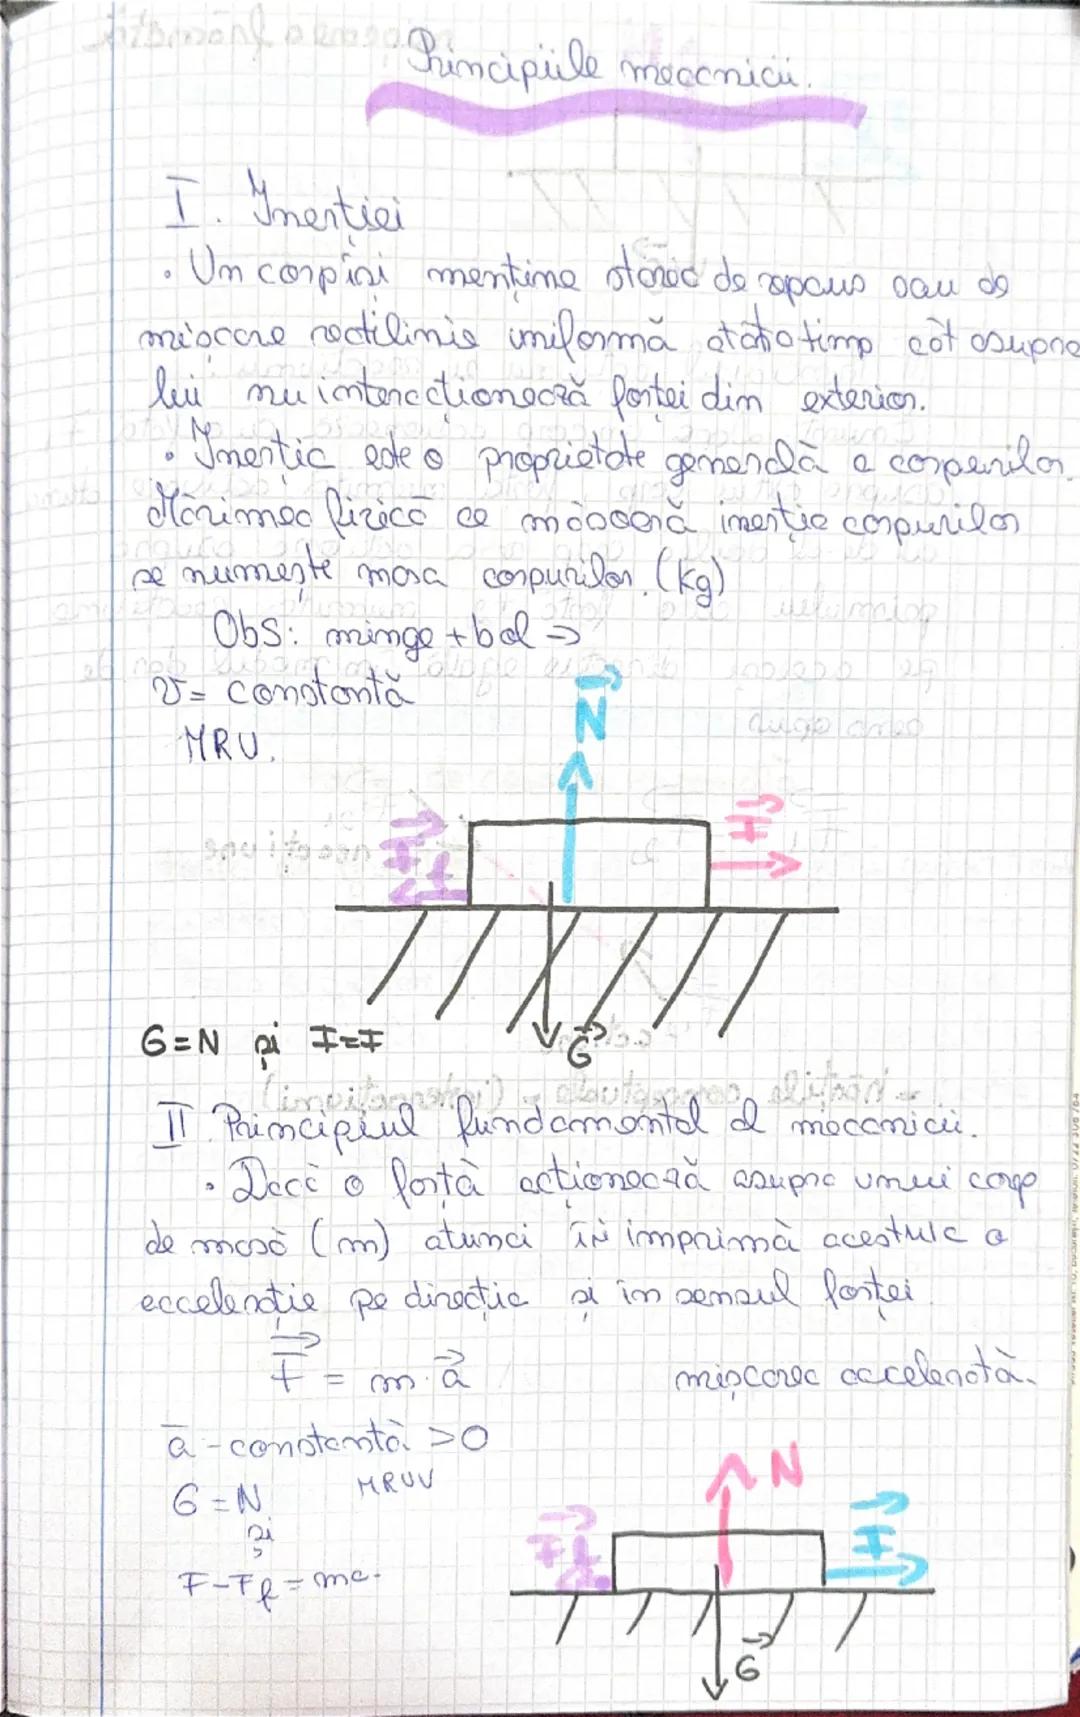 Principiile mecanicii.
I. Inerției
• Un corp își menține starea de repaus sau de
mișcare rectilinie uniformă atâta timp cât asupra
lui nu interacționează forței din exterior.
• Inerția este o proprietate generală a corpurilor.
Mărimea fizică ce măsoară inerția corpurilor
se numește masa corpurilor. (kg)
Obs: minge + bal =>
v = constantă
MRU.
N
F
Ff
G
G=N și F=F
II. Principiul fundamental al mecanicii.
• Dacă o forță acționează asupra unui corp
de masă (m) atunci îi imprimă acestuia o
accelerație pe direcția și în sensul forței.
F = m · a
mișcarea accelerată.
a - constantă > 0
G = N
MRUV
și
F - Ff = ma.
N
F
Ff
G